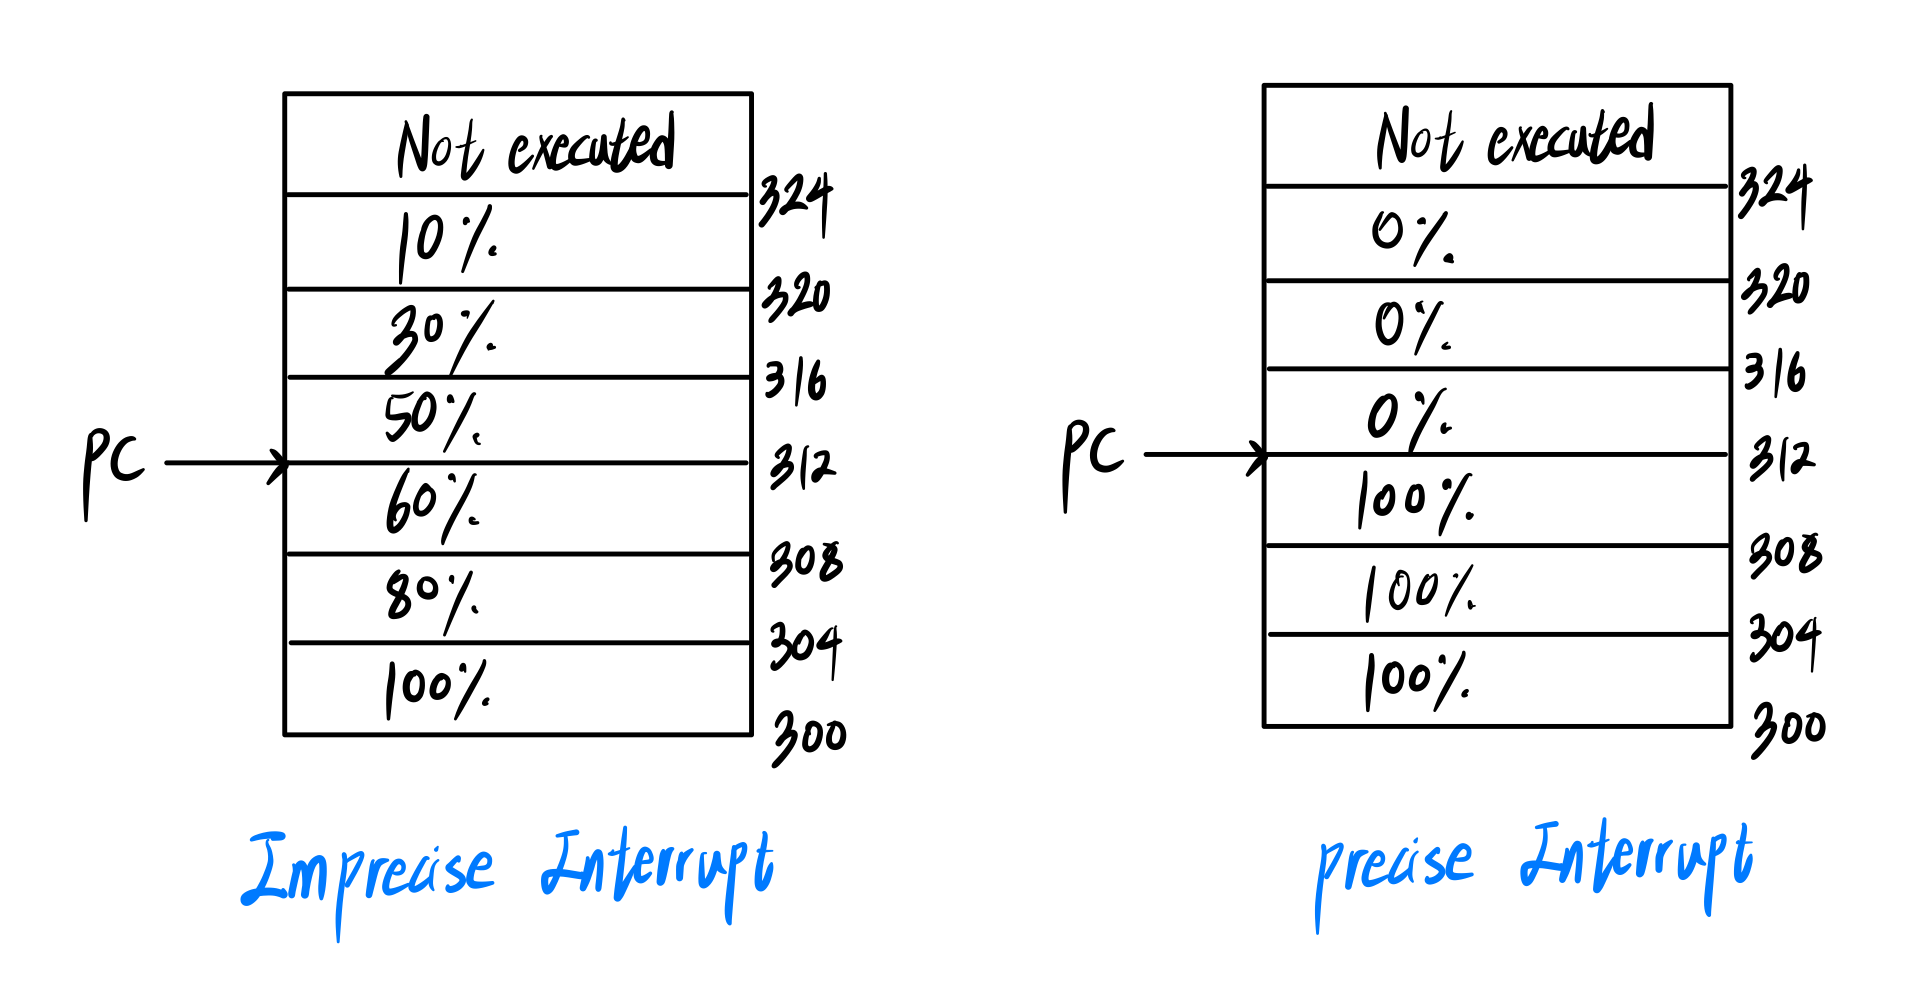 Not executed
324
10%
320
30%
316
50%
PC
312
60%
308
80%
304
100%
300
Imprecise Interrupt
Not executed
324
0%
320
0%
316
0%
PC
312
100%
308
100%
304
100%
300
precise Interrupt